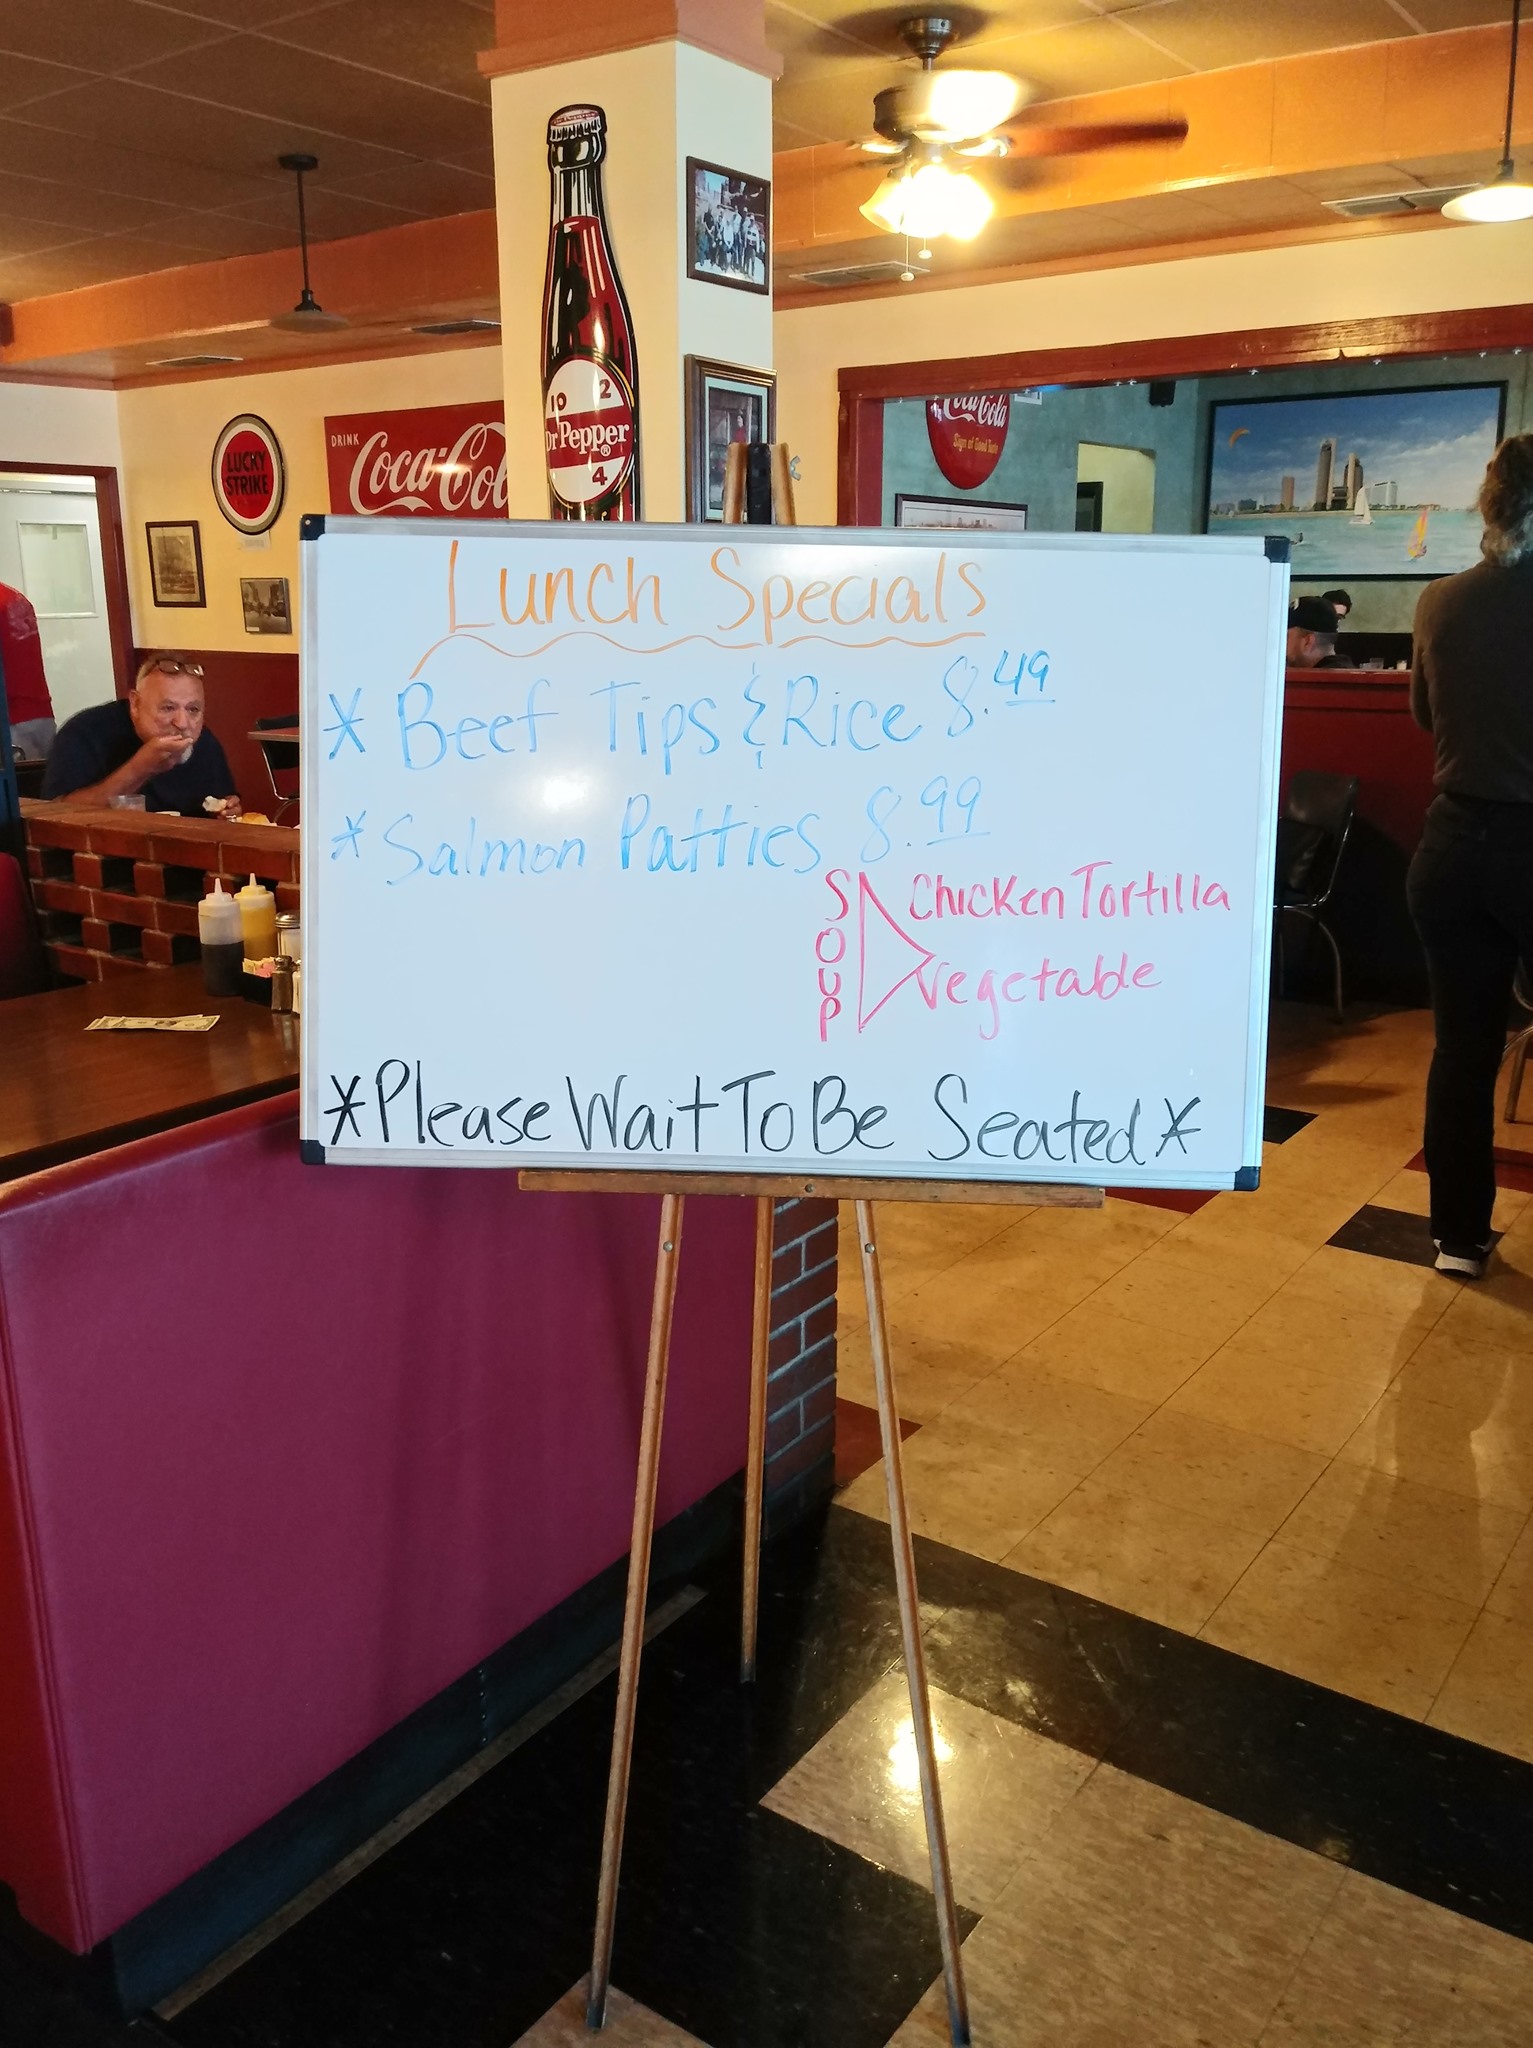 10 2
Dr Pepper®
4
LUCKY
STRIKE
DRINK
Coca-Col
Coca-Cola
Sign of Good Taste
Lunch Specials
* Beef Tips & Rice 8.49
* Salmon Patties 8.99
SOUP
Chicken Tortilla
Vegetable
*Please Wait To Be Seated*